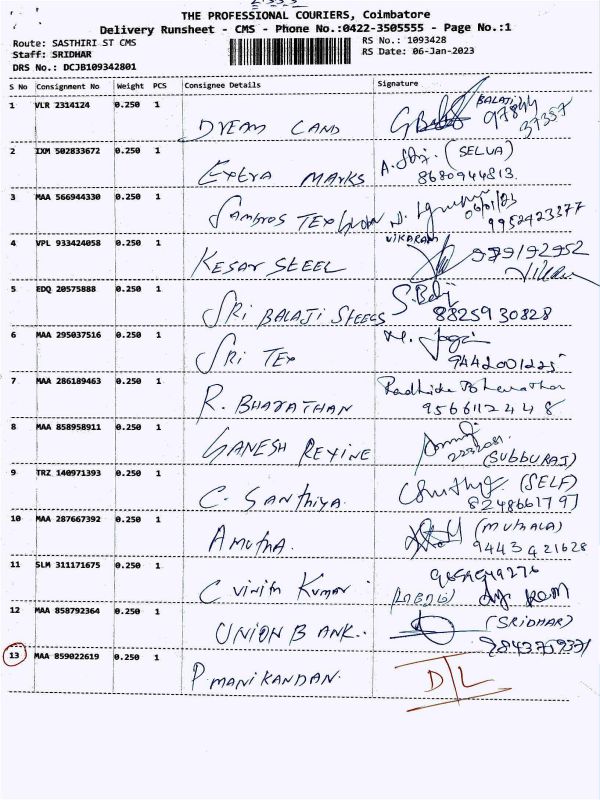 THE PROFESSIONAL COURIERS, Coimbatore
Delivery Runsheet - CMS - Phone No.:0422-3505555 - Page No.:1
Route: SASTHIRI ST CMS
RS No.: 1093428
Staff: SRIDHAR
RS Date: 06-Jan-2023
DRS No.: DCJB109342801
S No Consignment No Weight PCS Consignee Details Signature
1 VLR 2314124 0.250 1 DREAM LAND BALAJI 97844 37357
2 IXM 502833672 0.250 1 EXTRA MARKS (SELVA) 8680944813
3 MAA 566944330 0.250 1 06/01/23 9952423377
4 VPL 933424058 0.250 1 KESAR STEEL VIKARAM
5 EDQ 20575888 0.250 1 SRI BALAJI STEELS 88259 30828
6 MAA 295037516 0.250 1 SRI TEX 9442001225
7 MAA 286189463 0.250 1 R. BHARATHAN 9566112448
8 MAA 858958911 0.250 1 GANESH REXINE (SUBBURAJ)
9 TRZ 140971393 0.250 1 C. SANTHIYA. (SELF)
10 MAA 287667392 0.250 1 AMUTHA. 9443421628
11 SLM 311171675 0.250 1 C VINITH KUMAR
12 MAA 858792364 0.250 1 UNION BANK. (SRIDHAR)
13 MAA 859022619 0.250 1 P. MANIKANDAN. D/L